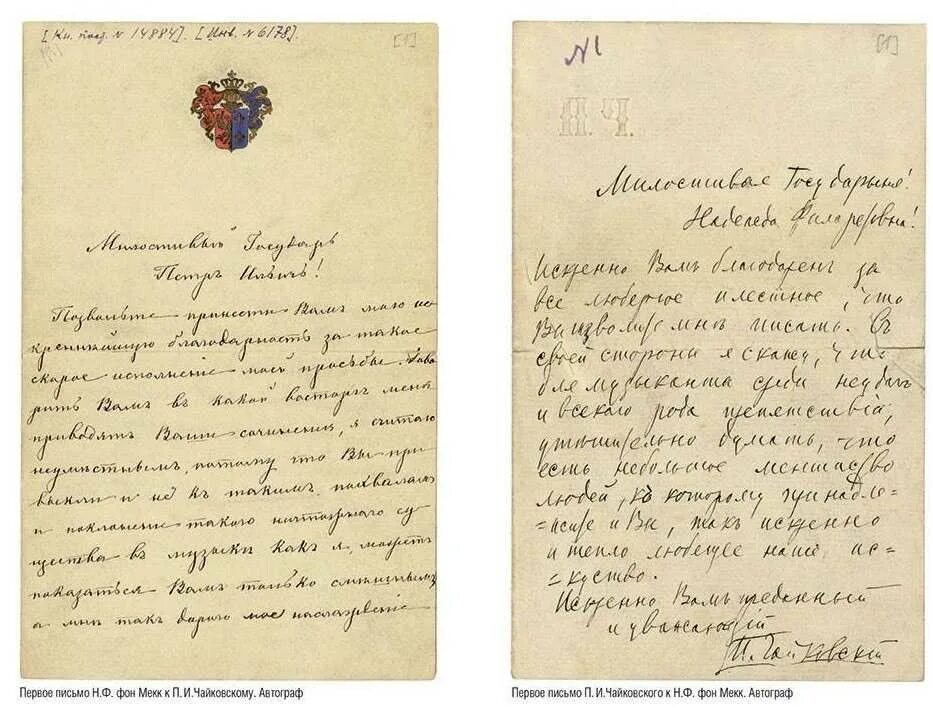 [Кн. пост. № 14884]. [Инв. № 6178].
[1]
Милостивый Государь
Петръ Ильичъ!
Позвольте принести Вамъ мою ис
креннѣйшую благодарность за такое
скорое исполненіе моей просьбы. Гово
рить Вамъ въ какой восторгъ меня
приводятъ Ваши сочиненія, я считаю
неумѣстнымъ, потому что Вы при
выкли и не къ такимъ похваламъ
и поклоненіе такого ничтожнаго су
щества въ музыкѣ какъ я, можетъ
показаться Вамъ только смѣшнымъ
а мнѣ такъ дорого мое наслажденіе
Первое письмо Н.Ф. фон Мекк к П.И.Чайковскому. Автограф
№ 1
[1]
П. Ч.
Милостивая Государыня!
Надежда Филаретовна!
Искренно Вамъ благодаренъ за
все любезное и лестное, что
Вы изволите мнѣ писать. Съ
своей стороны я скажу, что
для музыканта среди неудачъ
и всякаго рода препятствій,
утѣшительно думать, что
есть небольшое меньшинство
людей, къ которому принадле-
=жите и Вы, такъ искренно
и тепло любящее наше ис=
=куство.
Искренно Вамъ преданный
и уважающій
П. Чайковскій
Первое письмо П.И.Чайковского к Н.Ф. фон Мекк. Автограф